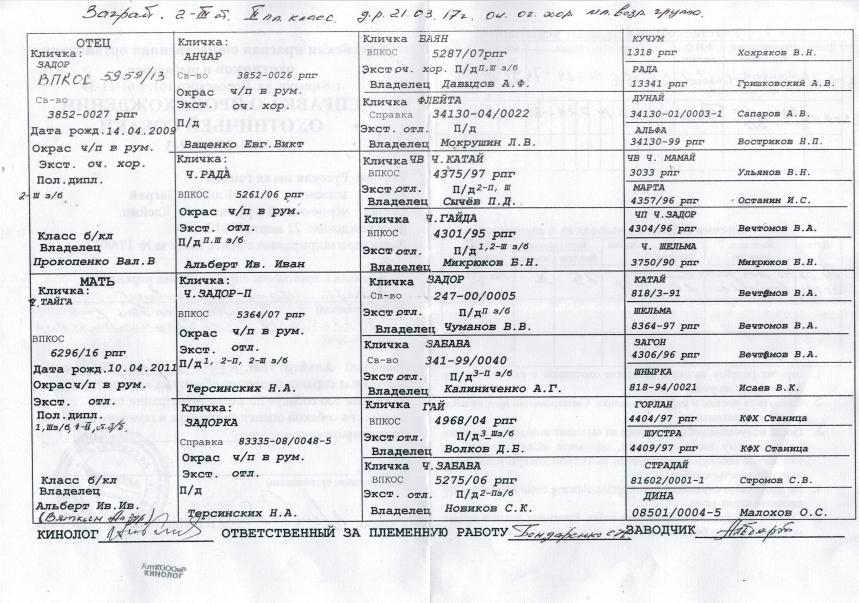 Заграй. 2-III ст. II пл. класс. д.р. 21.03.17г. оч. хор. мл. возр. группа.
ОТЕЦ
Кличка:
ЗАДОР
ВПКОС 5959/13
Св-во
3852-0027 рпг
Дата рожд.14.04.2009
Окрас ч/п в рум.
Экст. оч. хор.
Пол.дипл.
2-Ш з/б
Класс б/кл
Владелец
Прокопенко Вал.В
МАТЬ
Кличка:
Ч.ТАЙГА
ВПКОС
6296/16 рпг
Дата рожд.10.04.2011
Окрас ч/п в рум.
Экст. отл.
Пол.дипл.
Класс б/кл
Владелец
Альберт Ив.Ив.
Кличка:
АНЧАР
Св-во 3852-0026 рпг
Окрас ч/п в рум.
Экст. оч. хор.
П/д
Ващенко Евг.Викт
Кличка:
Ч.РАДА
ВПКОС 5261/06 рпг
Окрас ч/п в рум.
Экст. отл.
П/д П.Ш з/б
Альберт Ив. Иван
Кличка:
Ч.ЗАДОР-П
ВПКОС 5364/07 рпг
Окрас ч/п в рум.
Экст. отл.
П/д 1, 2-П, 2-Ш з/б
Терсинских Н.А.
Кличка:
ЗАДОРКА
Справка 83335-08/0048-5
Окрас ч/п в рум.
Экст. отл.
П/д
Терсинских Н.А.
Кличка БАЯН
ВПКОС 5287/07рпг
Экст оч. хор. П/д П,Ш з/б
Владелец Давыдов А.Ф.
Кличка ФЛЕЙТА
Справка 34130-04/0022
Экст. отл. П/д
Владелец Мокрушин Л.В.
Кличка ЧВ Ч.КАТАЙ
ВПКОС 4375/97 рпг
Экст отл. П/д 2-П, Ш
Владелец Сычёв П.Д.
Кличка Ч.ГАЙДА
ВПКОС 4301/95 рпг
Экст отл. П/д 1,2-Ш з/б
Владелец Микрюков Б.Н.
Кличка ЗАДОР
Св-во 247-00/0005
Экст. отл. П/д П з/б
Владелец Чуманов В.В.
Кличка ЗАБАВА
Св-во 341-99/0040
Экст. отл. П/д 3-П з/б
Владелец Калиниченко А.Г.
Кличка ГАЙ
ВПКОС 4968/04 рпг
Экст отл. П/д 3_Шз/б
Владелец Волков Д.Б.
Кличка Ч.ЗАБАВА
ВПКОС 5275/06 рпг
Экст. отл. П/д 2-Пз/б
Владелец Новиков С.К.
КУЧУМ
1318 рпг Хохряков В.Н.
РАДА
13341 рпг Гришковский А.В.
ДУНАЙ
34130-01/0003-1 Сапаров А.В.
АЛЬФА
34130-99 рпг Востриков Н.П.
ЧВ Ч. МАМАЙ
3033 рпг Ульянов В.Н.
МАРТА
4357/96 рпг Останин И.С.
ЧП Ч.ЗАДОР
4304/96 рпг Вечтомов В.А.
Ч. ШЕЛЬМА
3750/90 рпг Микрюков Б.Н.
КАТАЙ
818/3-91 Вечтомов В.А.
ШЕЛЬМА
8364-97 рпг Вечтомов В.А.
ЗАГОН
4306/96 рпг Вечтомов В.А.
ШНЫРКА
818-94/0021 Исаев В.К.
ГОРЛАН
4404/97 рпг КФХ Станица
ШУСТРА
4409/97 рпг КФХ Станица
СТРАДАЙ
81602/0001-1 Стромов С.В.
ДИНА
08501/0004-5 Малохов О.С.
КИНОЛОГ ОТВЕТСТВЕННЫЙ ЗА ПЛЕМЕННУЮ РАБОТУ Бондаренко ЗАВОДЧИК
АлтКОООиР
КИНОЛОГ